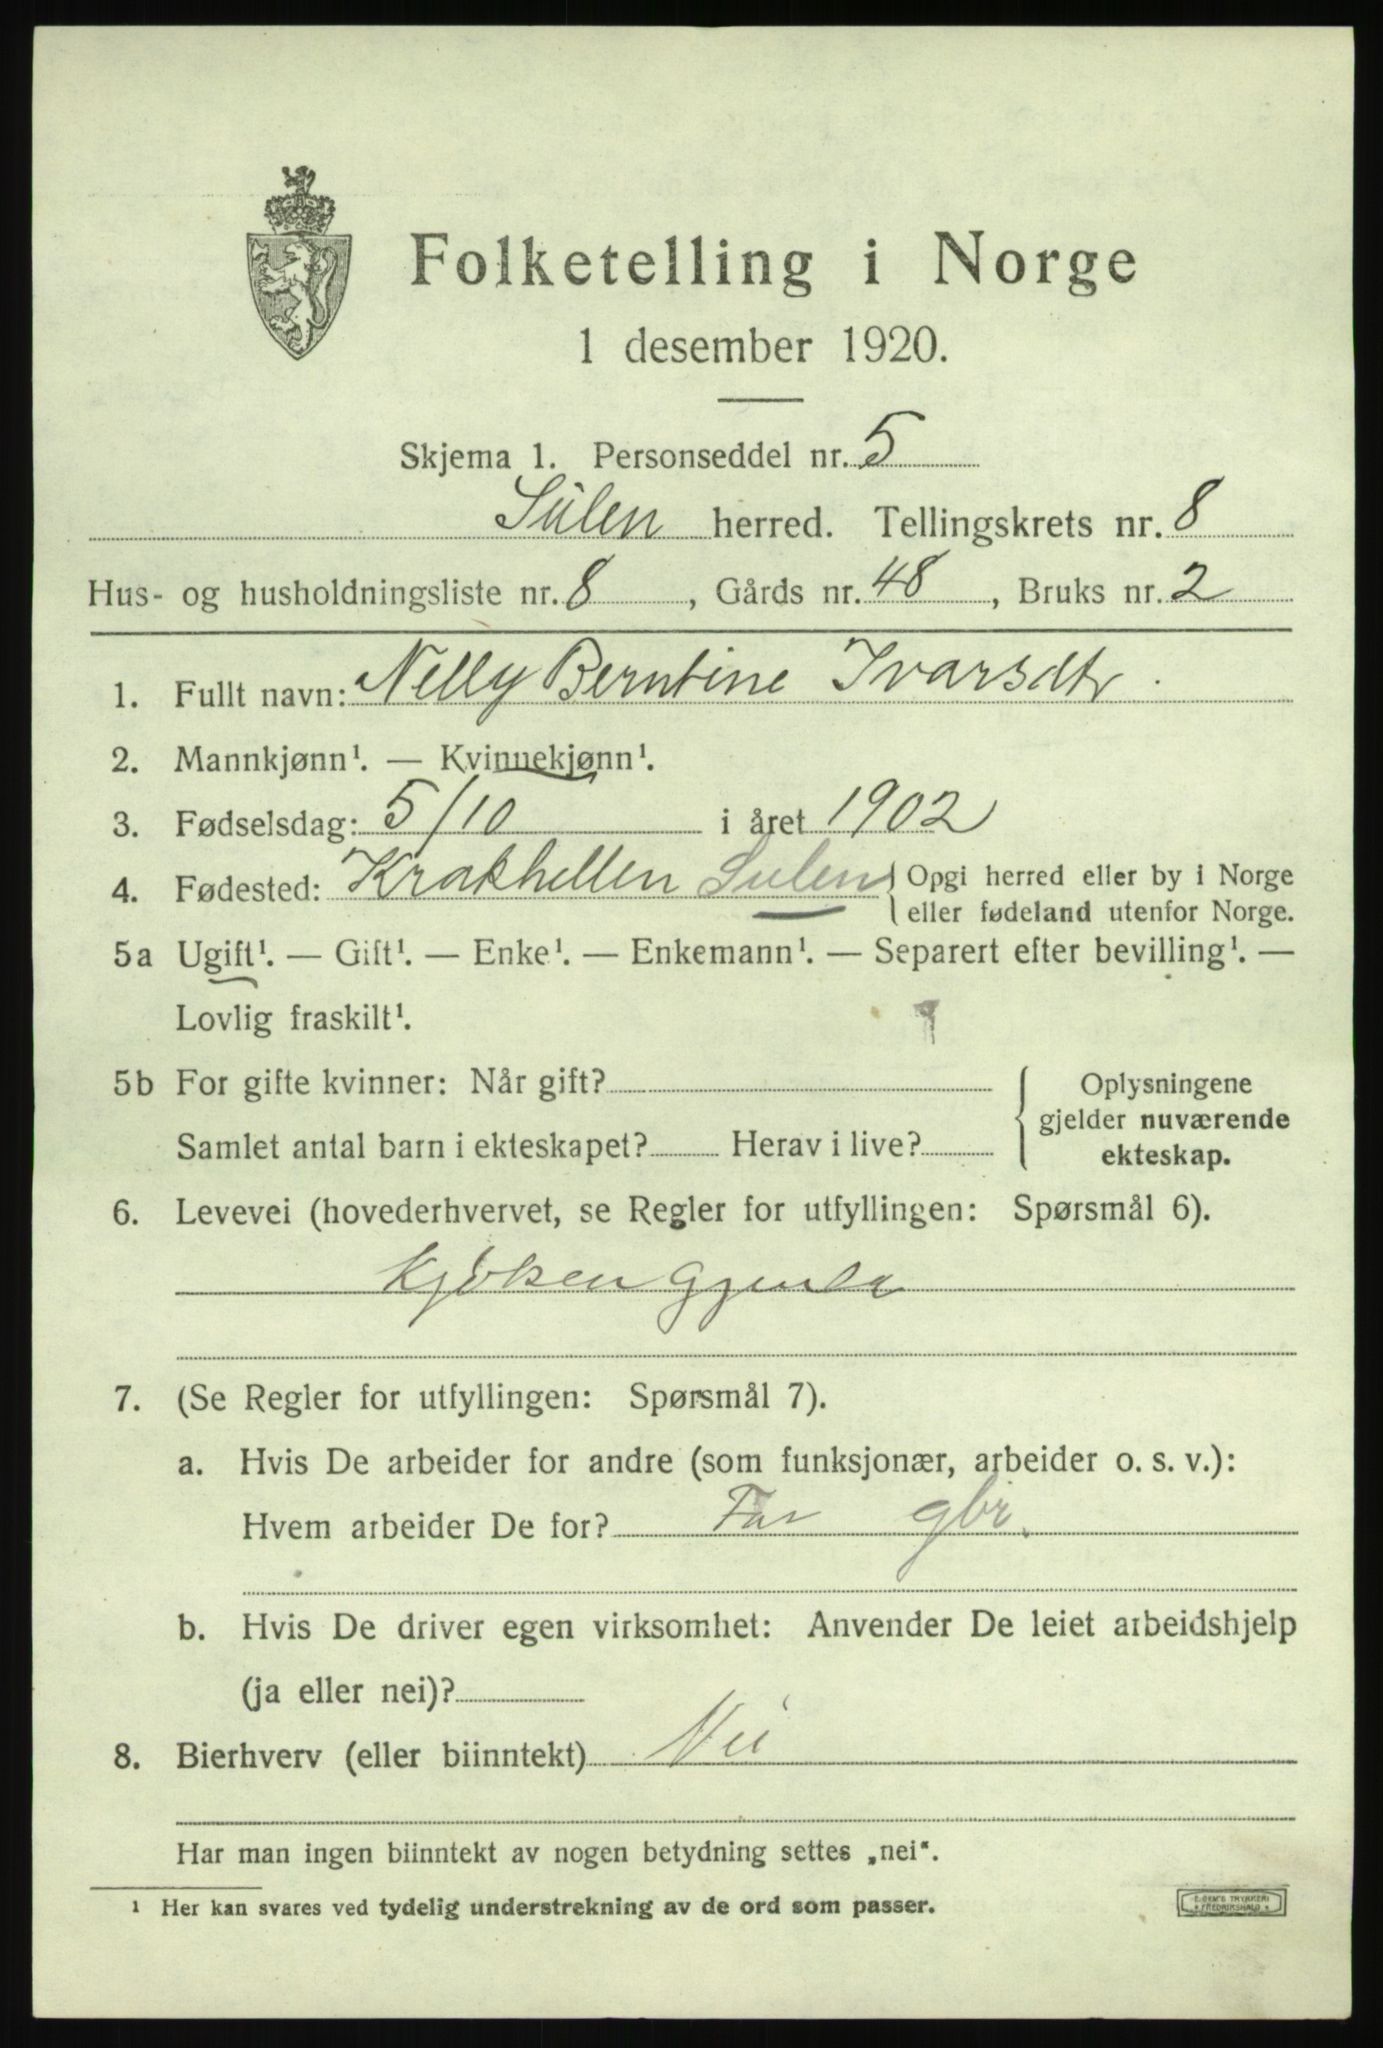 Folketelling i Norge
1 desember 1920.
Skjema 1. Personseddel nr. 5
Sulen herred. Tellingskrets nr. 8
Hus- og husholdningsliste nr. 8, Gårds nr. 48, Bruks nr. 2
1. Fullt navn: Nelly Berntine Ivarsdtr.
2. Mannkjønn¹. — Kvinnekjønn¹.
3. Fødselsdag: 5/10 i året 1902
4. Fødested: Krakhellen Sulen { Opgi herred eller by i Norge
eller fødeland utenfor Norge.
5a Ugift¹. — Gift¹. — Enke¹. — Enkemann¹. — Separert efter bevilling¹. —
Lovlig fraskilt¹.
5b For gifte kvinner: Når gift?
Samlet antal barn i ekteskapet? Herav i live?
{ Oplysningene
gjelder nuværende
ekteskap.
6. Levevei (hovederhvervet, se Regler for utfyllingen: Spørsmål 6).
7. (Se Regler for utfyllingen: Spørsmål 7).
a. Hvis De arbeider for andre (som funksjonær, arbeider o. s. v.):
Hvem arbeider De for? Far gbr.
b. Hvis De driver egen virksomhet: Anvender De leiet arbeidshjelp
(ja eller nei)?
8. Bierhverv (eller biinntekt) Nei
Har man ingen biinntekt av nogen betydning settes „nei“.
¹ Her kan svares ved tydelig understrekning av de ord som passer.